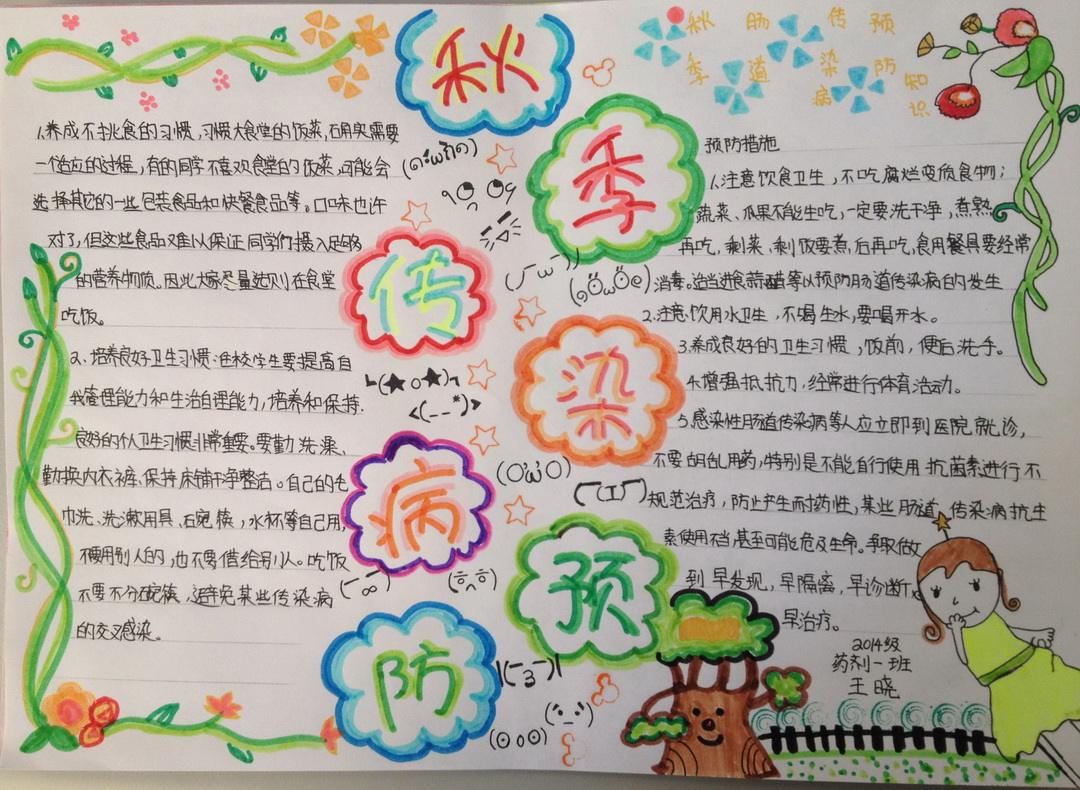 秋季传染病预防
秋季肠道传染病预防知识
1.养成不挑食的习惯,习惯大食堂的饭菜,确实需要
一个适应的过程,有的同学不喜欢食堂的饭菜,可能会
选择其它的一些包装食品和快餐食品等。口味也许
对了,但这些食品难以保证同学们摄入足够
的营养物质。因此大家尽量选则在食堂
吃饭。
2、培养良好卫生习惯:在校学生要提高自
我管理能力和生活自理能力,培养和保持
良好的个人卫生习惯非常重要。要勤洗澡、
勤换内衣裤、保持床铺干净整洁。自己的毛
巾洗、洗漱用具、碗筷,水杯等自己用,
不要用别人的,也不要借给别人。吃饭
不要不分碗筷,避免某些传染病
的交叉感染。
预防措施
1.注意饮食卫生,不吃腐烂变质食物;
蔬菜、瓜果不能生吃,一定要洗干净,煮熟
再吃,剩菜、剩饭要煮后再吃,食用餐具要经常
消毒。适当进食蒜醋等以预防肠道传染病的发生
2.注意饮用水卫生,不喝生水,要喝开水。
3.养成良好的卫生习惯,饭前,便后洗手。
4.增强抵抗力,经常进行体育活动。
5.感染性肠道传染病等人应立即到医院就诊,
不要胡乱用药,特别是不能自行使用抗菌素进行不
规范治疗,防止产生耐药性,某些肠道传染病抗生
素使用不当甚至可能危及生命。争取做
到早发现,早隔离,早诊断,
早治疗。
2014级
药剂一班
王晓